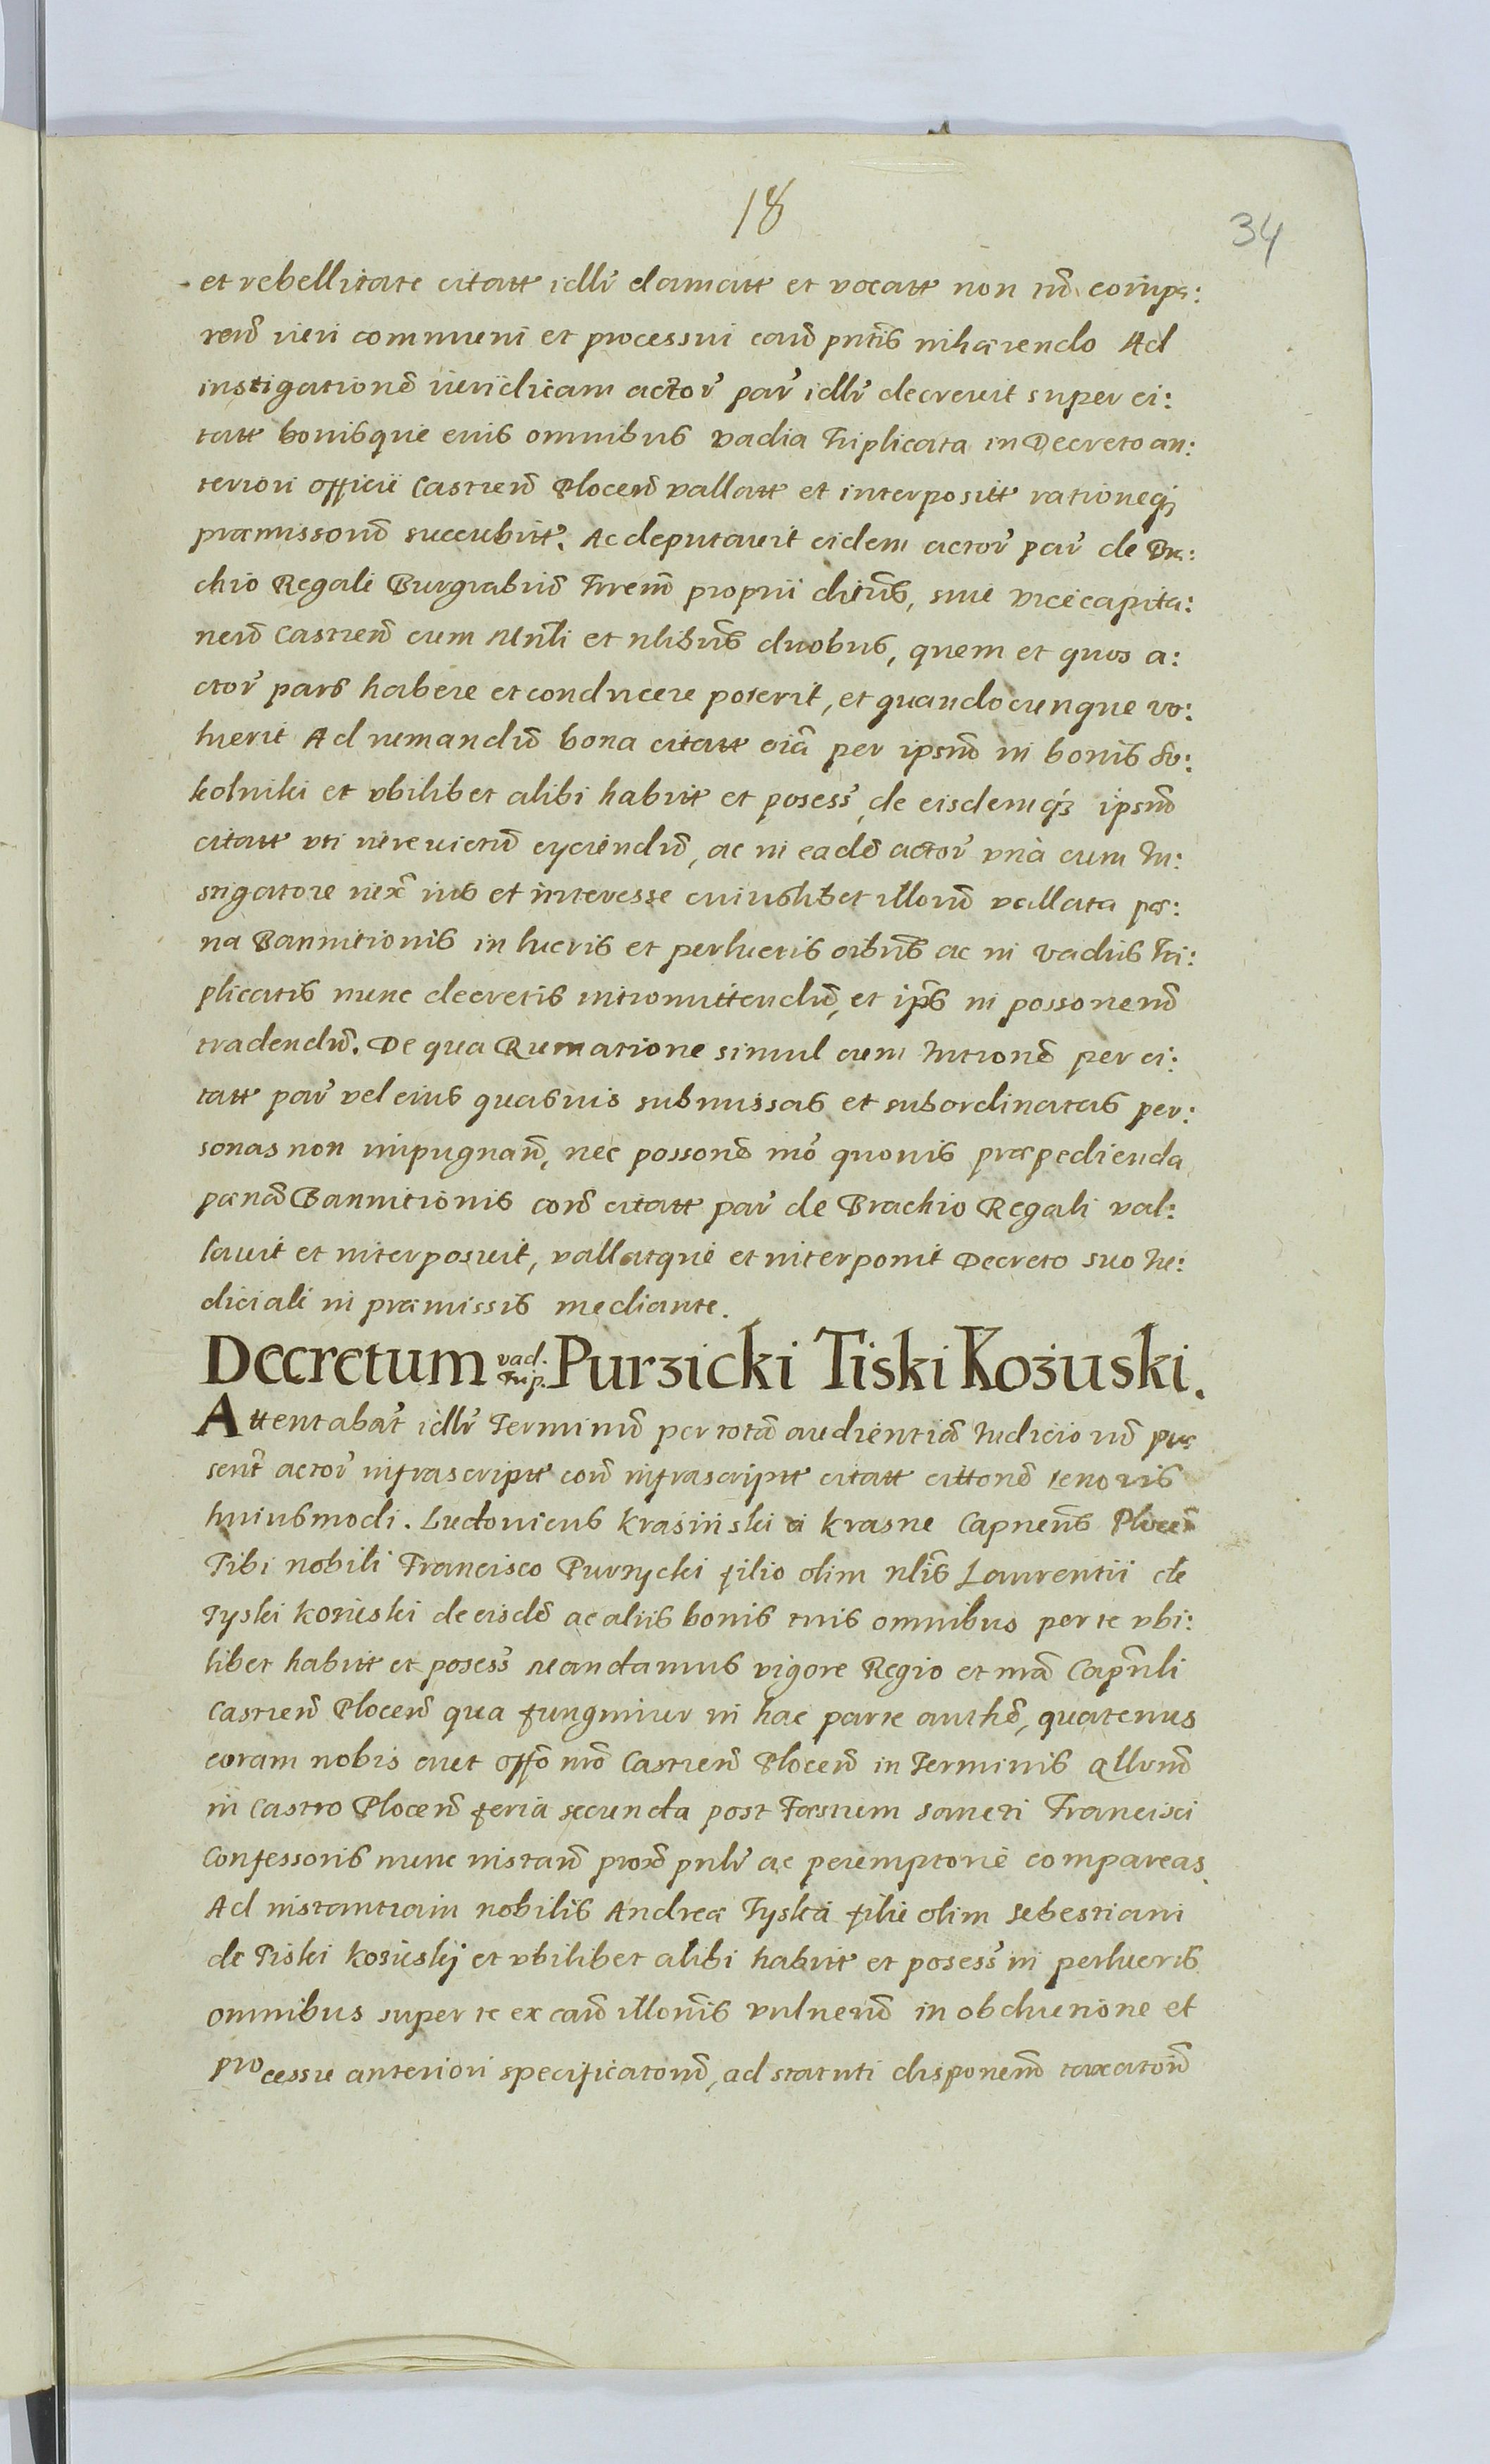 18
34
et rebellitate citatt idłr clamatt et vocatt non tñ compa:
reñ iuri communi et processui cauſ pntis inhærendo Ad
instigationẽ iuridicam actor̃ par̃ idłr decrevit super ci:
tatt bonisque euis omnibus vadia Triplicata in Decreto an:
teriori officii Castreñ Ploceñ vallatt et interpositt rationeqȝ
præmissorũ succubitt. Ac deputauit eidem actor̃ par̃ de Bra:
chio Regali Burgrabiũ Trrem̃ proprii ditũs, sive vicecapita:
neũ Castreñ cum Mñli et nlibũs duobus, quem et quos a:
ctor̃ pars habere et conducere poterit, et quandocunque vo:
luerit Ad rumandũ bona citatt oiã per ipsũ in bonis So:
kolniki et vbilibet alibi habitt et posess̃, de eisdemqȝ ipsũ
citatt vti iure victũ eyciendũ, ac in eadẽ actor̃ vnà cum In:
stigatore iuxᵃ ius et interesse cuiuslibet illorũ vallata pæ:
na Bannitionis in lucris et perlucris oibũs ac in vadiis Tri:
plicatis nunc decretis intromittendũ, et ipĩs in possonem̃
tradendũ. De qua Rumatione simul cum Intronẽ per ci:
tatt par̃ vel eius quasuis submissas et subordinatas per:
sonas non impugnañ, nec possonẽ mõ quouis præpedienda
pœnã Bannitionis corã citatt par̃ de Brachio Regali val:
lauit et interposuit, vallatque et interponit Decreto suo Iu:
diciali in præmissis mediante.
Decretum vad. Trip. Purzicki Tiski Kożuski.
Attentabat̃ idłr Terminũ per totã audientiã Iudiciorũ præ
sent̃ actor̃ infrascriptt corã infrascriptt citatt cittonẽ tenoris
huiusmodi. Ludovicus Krasiński à Krasne Capneũs Ploceñ
Tibi nobili Francisco Purzycki filio olim nlis̃ Laurentii de
Tyski Kozuski de eisdẽ ac aliis bonis tuis omnibus per te vbi:
libet habitt et posess̃ Mandamus vigore Regio et nrã Capñli
Castreñ Ploceñ qua fungimur in hac parte authẽ, quatenus
coram nobis aut offõ nrõ Castreñ Ploceñ in Terminis Qllrũ
in Castro Ploceñ feria secunda post Fæstum Sancti Francisci
Confessoris nunc instañ proxẽ pnlr̃ ac peremptoriè compareas.
Ad instantiam nobilis Andreæ Tyska filii olim Sebestiani
de Tiski Kozuskij et vbilibet alibi habitt et posess̃ in perlucris
omnibus super te ex cauſ illonĩs vulnerũ in obductione et
processu anteriori specificatorũ, ad statuti disponem̃ taxatorũ